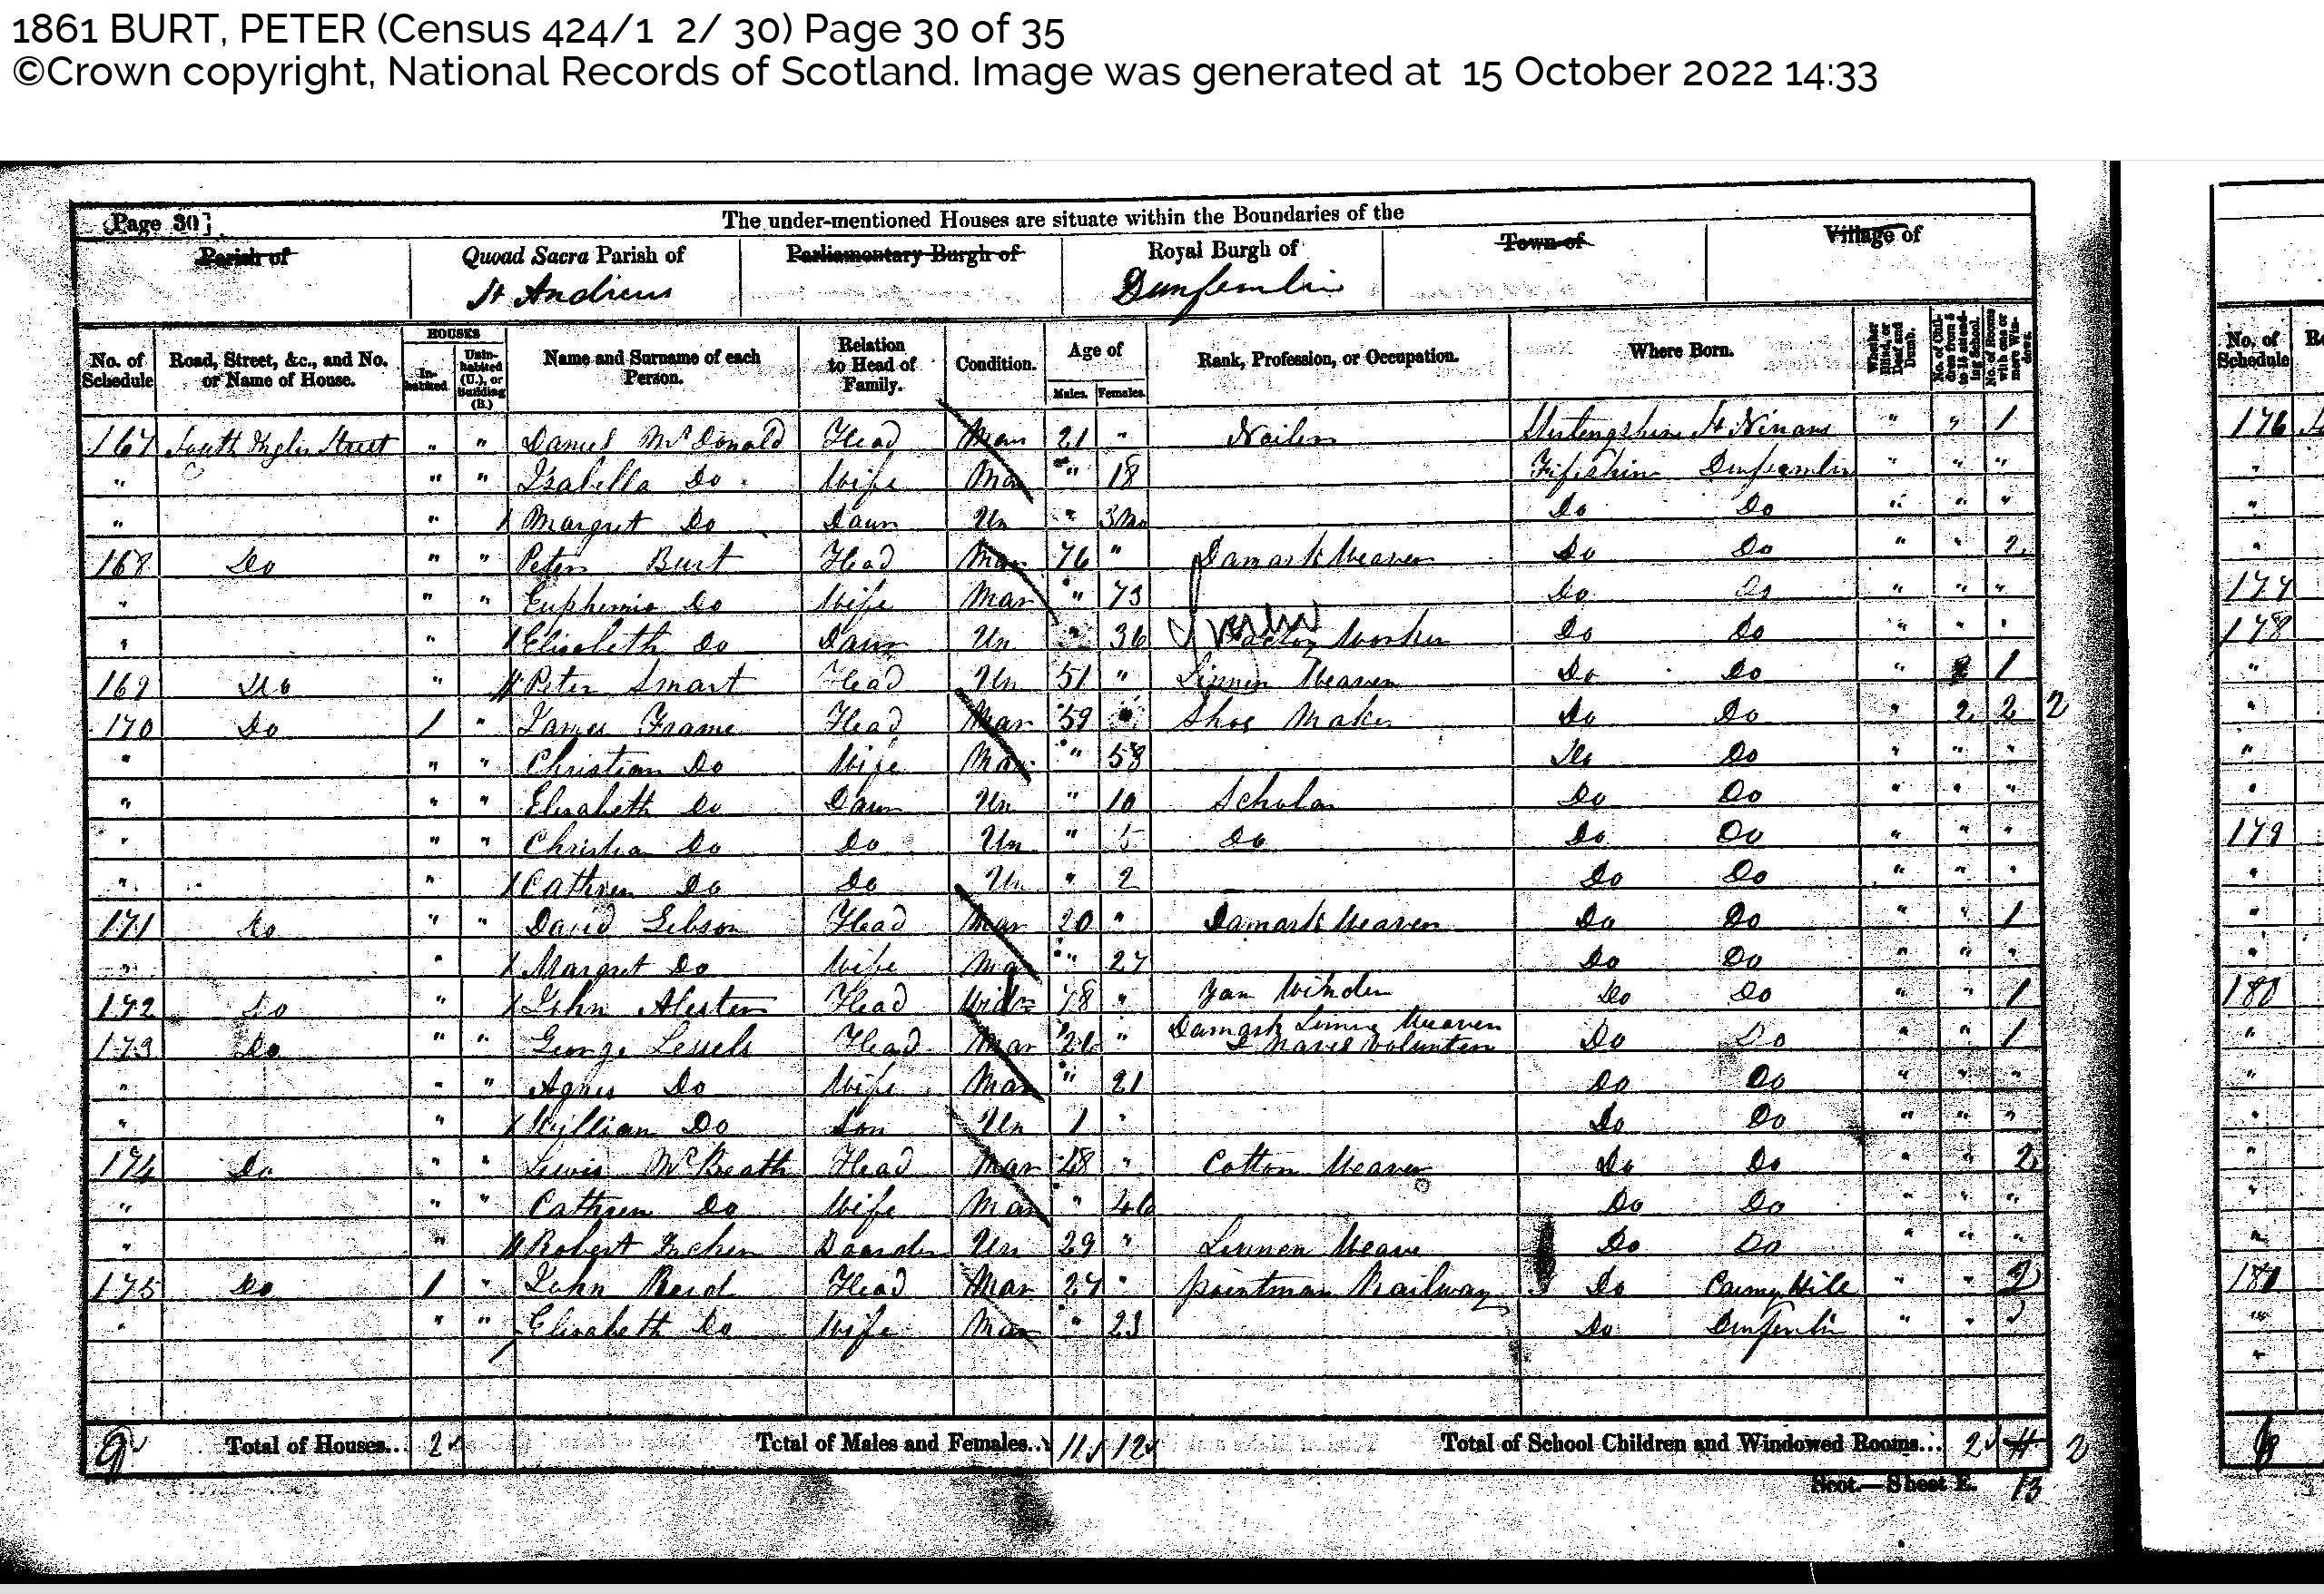 1861 BURT, PETER (Census 424/1 2/ 30) Page 30 of 35
©Crown copyright, National Records of Scotland. Image was generated at 15 October 2022 14:33
Page 30] The under-mentioned Houses are situate within the Boundaries of the
Parish of Quoad Sacra Parish of Parliamentary Burgh of Royal Burgh of Town of Village of
St Andrews Dunfemlin
No. of Schedule Road, Street, &c., and No. or Name of House. HOUSES In-habited Unin-habited (U.), or Building (B.) Name and Surname of each Person. Relation to Head of Family. Condition. Age of Males. Females. Rank, Profession, or Occupation. Where Born. Whether Blind, or Deaf and Dumb. No. of Chil-dren from 5 to 15 attend-ing School. No. of Rooms with one or more Win-dows. No. of Schedule
167 South Street " " Daniel McDonald Head Mar 21 " Nailer Stirlingshire St Ninans " " 1 176
" " " Isabella Do Wife Mar " 18 Fifeshire Dunfermlin " " " "
" " Margret Do Daur Un " 3 Mo Do Do " " " "
168 Do " " Peter Burt Head Mar 76 " Damask Weaver Do Do " " 2 "
" " " Euphemia Do Wife Mar " 73 Do Do " " " 177
" " Elisabeth Do Daur Un " 36 Factory Worker Do Do " " " 178
169 Do " Peter Smart Head Un 51 " Linnen Weaver Do Do " 1 "
170 Do 1 " James Frame Head Mar 59 Shoe Maker Do Do " 2 2 2 "
" " " Christian Do Wife Mar " 58 Do Do " " " "
" " " Elisabeth Do Daur Un " 10 Scholar Do Do " " " "
" " " Christian Do Do Un " 5 Do Do Do " " " 179
" " Cathren Do Do Un " 2 Do Do " " " "
171 Do " " David Gibson Head Mar 20 " Damask Weaver Do Do " " 1 "
" " Margret Do Wife Mar " 27 Do Do " " " "
172 Do " John Head Widr 78 " Yarn Winder Do Do " " 1 180
173 Do " " George Lessels Head Mar " Damask Linne Weaver Do Do " " 1 "
& Naval Volunteer
" " " Agnes Do Wife Mar " 21 Do Do " " " "
" " William Do Son Un 1 " Do Do " " " "
174 Do " " Lewis McBeath Head Mar 48 " Cotton Weaver Do Do " " 2 "
" " " Cathren Do Wife Mar " 46 Do Do " " " "
" " Robert Boarder Un 29 " Linnen Weave Do Do " " " "
175 Do 1 " John Reid Head Mar 27 " pointman Railway Do Carny Hill " " 2 181
" " " Elisabeth Do Wife Mar " 23 Do Dunfermlin " " "
9 Total of Houses... 2 Total of Males and Females... 11 12 Total of School Children and Windowed Rooms... 2 2
Scot.—Sheet E. 13